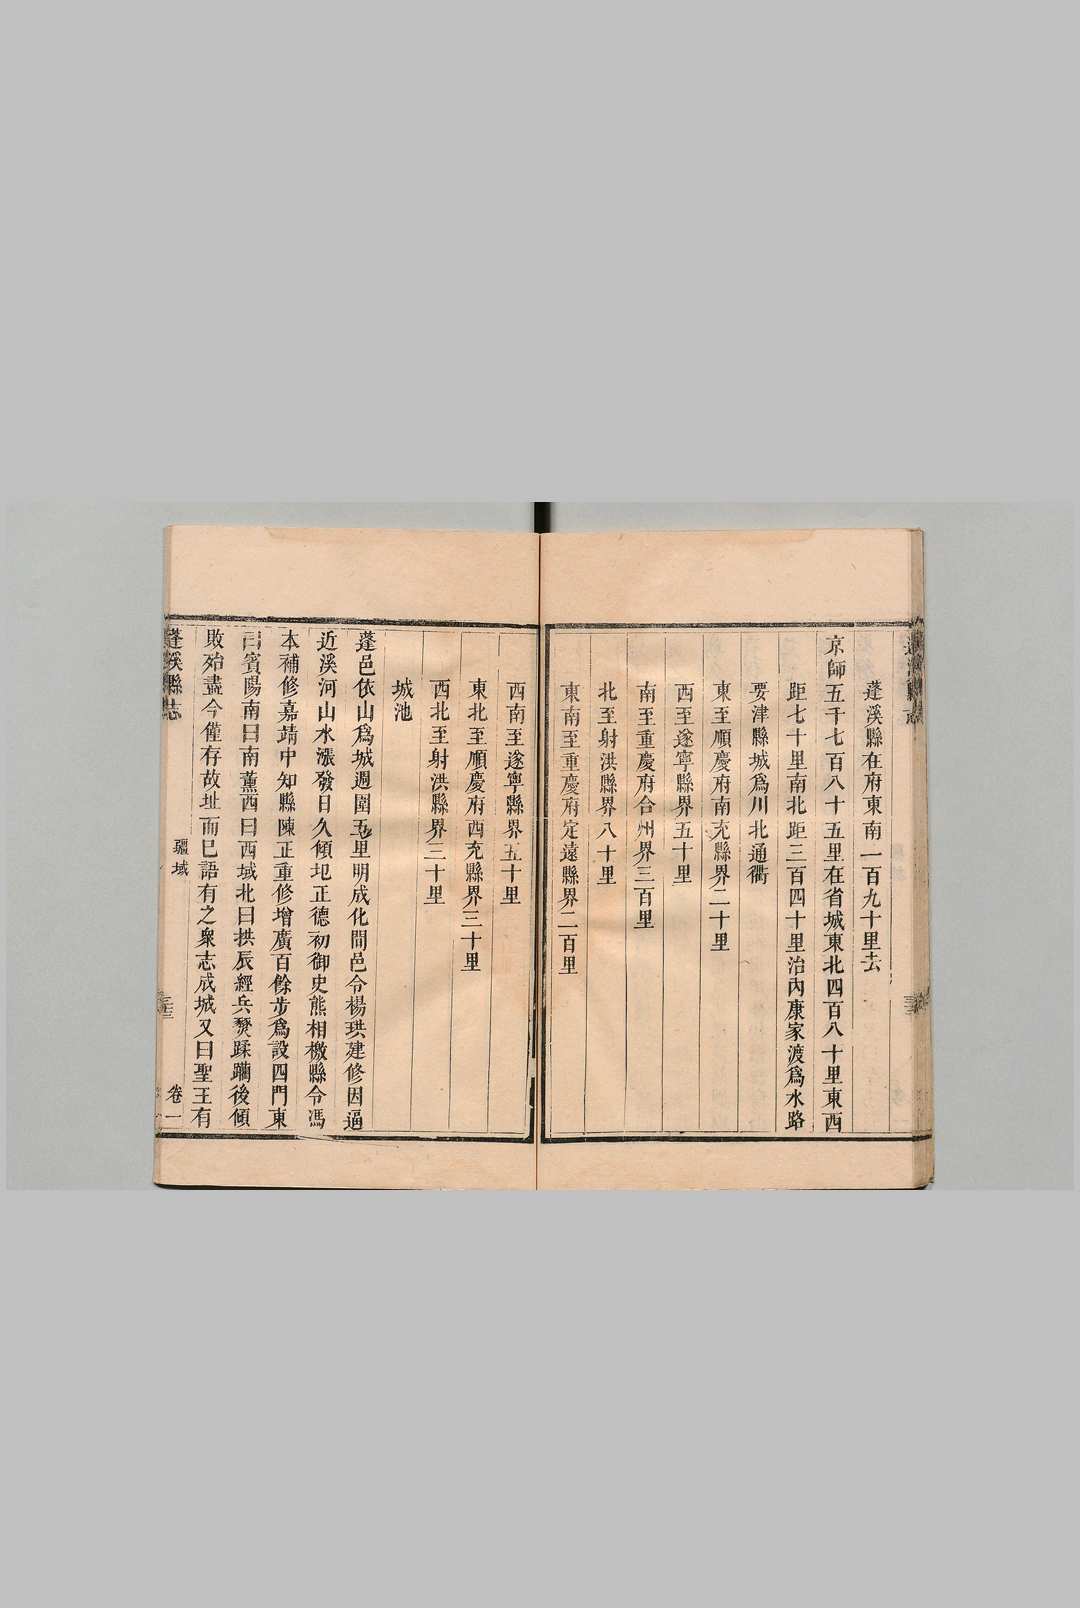 蓬溪縣志
蓬溪縣在府東南一百九十里去
京師五千七百八十五里在省城東北四百八十里東西
距七十里南北距三百四十里治內康家渡爲水路
要津縣城爲川北通衢
東至順慶府南充縣界二十里
西至遂寧縣界五十里
南至重慶府合州界三百里
北至射洪縣界八十里
東南至重慶府定遠縣界二百里
西南至遂寧縣界五十里
東北至順慶府西充縣界三十里
西北至射洪縣界三十里
城池
蓬邑依山爲城週圍五里明成化間邑令楊珙建修因逼
近溪河山水漲發日久傾圮正德初御史熊相檄縣令馮
本補修嘉靖中知縣陳正重修增廣百餘步爲設四門東
曰賓陽南曰南薰西曰西域北曰拱辰經兵燹蹂躪後傾
敗殆盡今僅存故址而已語有之衆志成城又曰聖王有
蓬溪縣志 疆域 卷一